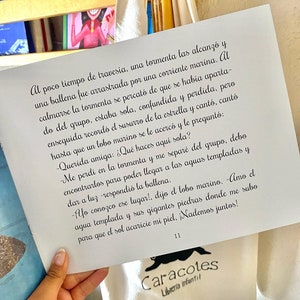 Al poco tiempo de travesía, una tormenta las alcanzó y
una ballena fue arrastrada por una corriente marina. Al
calmarse la tormenta se percató de que se había aparta-
do del grupo, estaba sola, confundida y perdida, pero
enseguida recordó el susurro de la estrella y cantó, cantó
hasta que un lobo marino se le acercó y le preguntó:
-Querida amiga: ¿Qué haces aquí sola?
-Me perdí en la tormenta y me separé del grupo, debo
encontrarlos para poder llegar a las aguas templadas y
dar a luz -respondió la ballena.
-¡Yo conozco ese lugar!, dijo el lobo marino. -Amo el
agua templada y sus gigantes piedras donde me subo
para que el sol acaricie mi piel. ¡Nademos juntos!
11
Caracoles
Librería Infantil